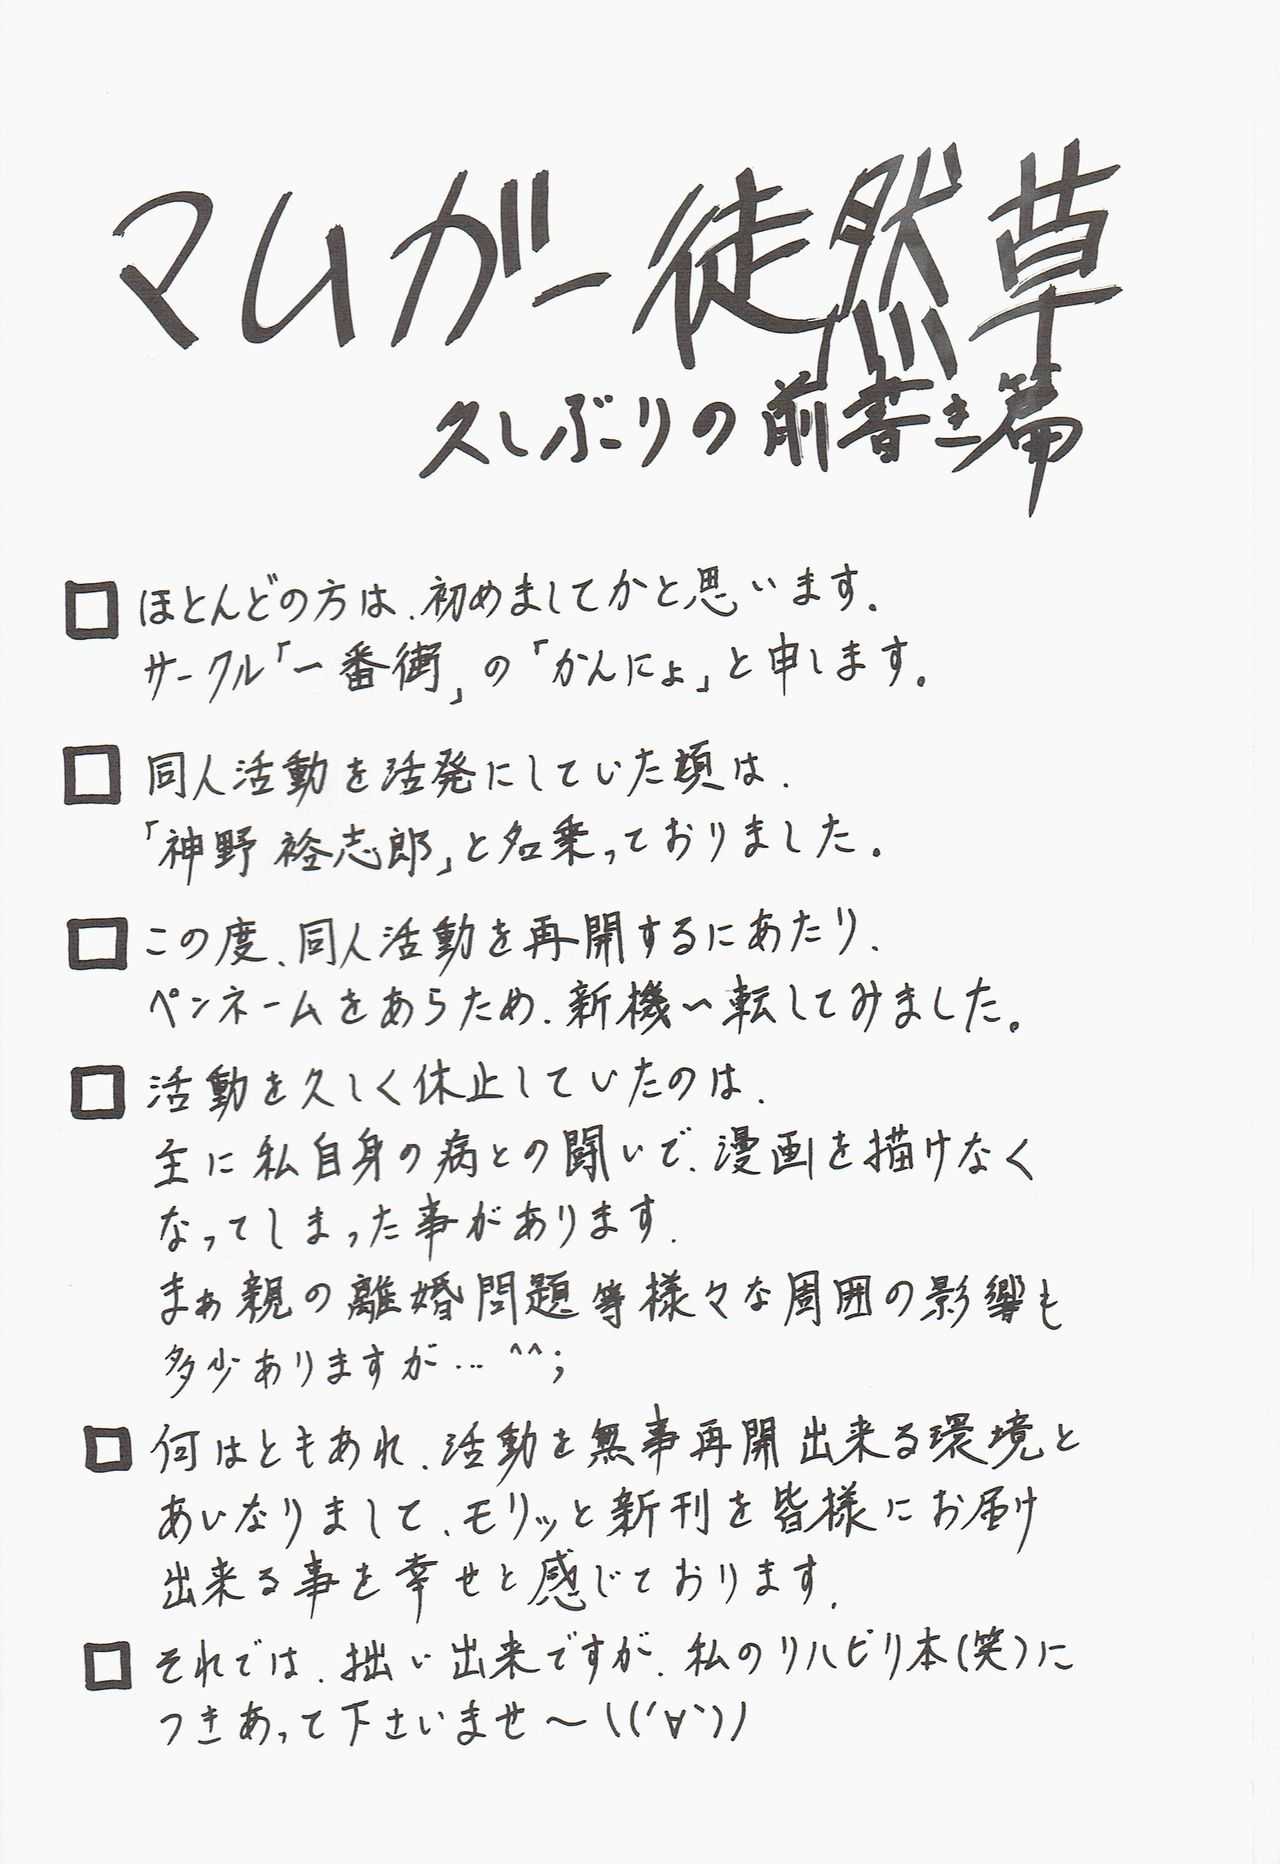 マムガー徒然草
久しぶりの前書き篇
□ほとんどの方は、初めましてかと思います。
サークル「一番街」の「かんにょ」と申します。
□同人活動を活発にしていた頃は、
「神野 裕志郎」と名乗っておりました。
□この度、同人活動を再開するにあたり、
ペンネームをあらため、新機一転してみました。
□活動を久しく休止していたのは、
主に私自身の病との闘いで、漫画を描けなく
なってしまった事があります。
まぁ親の離婚問題等様々な周囲の影響も
多少ありますが…^^;
□何はともあれ、活動を無事再開出来る環境と
あいなりまして、モリッと新刊を皆様にお届け
出来る事を幸せと感じております。
□それでは、拙い出来ですが、私のリハビリ本(笑)に
つきあって下さいませ～\(('∀`))/